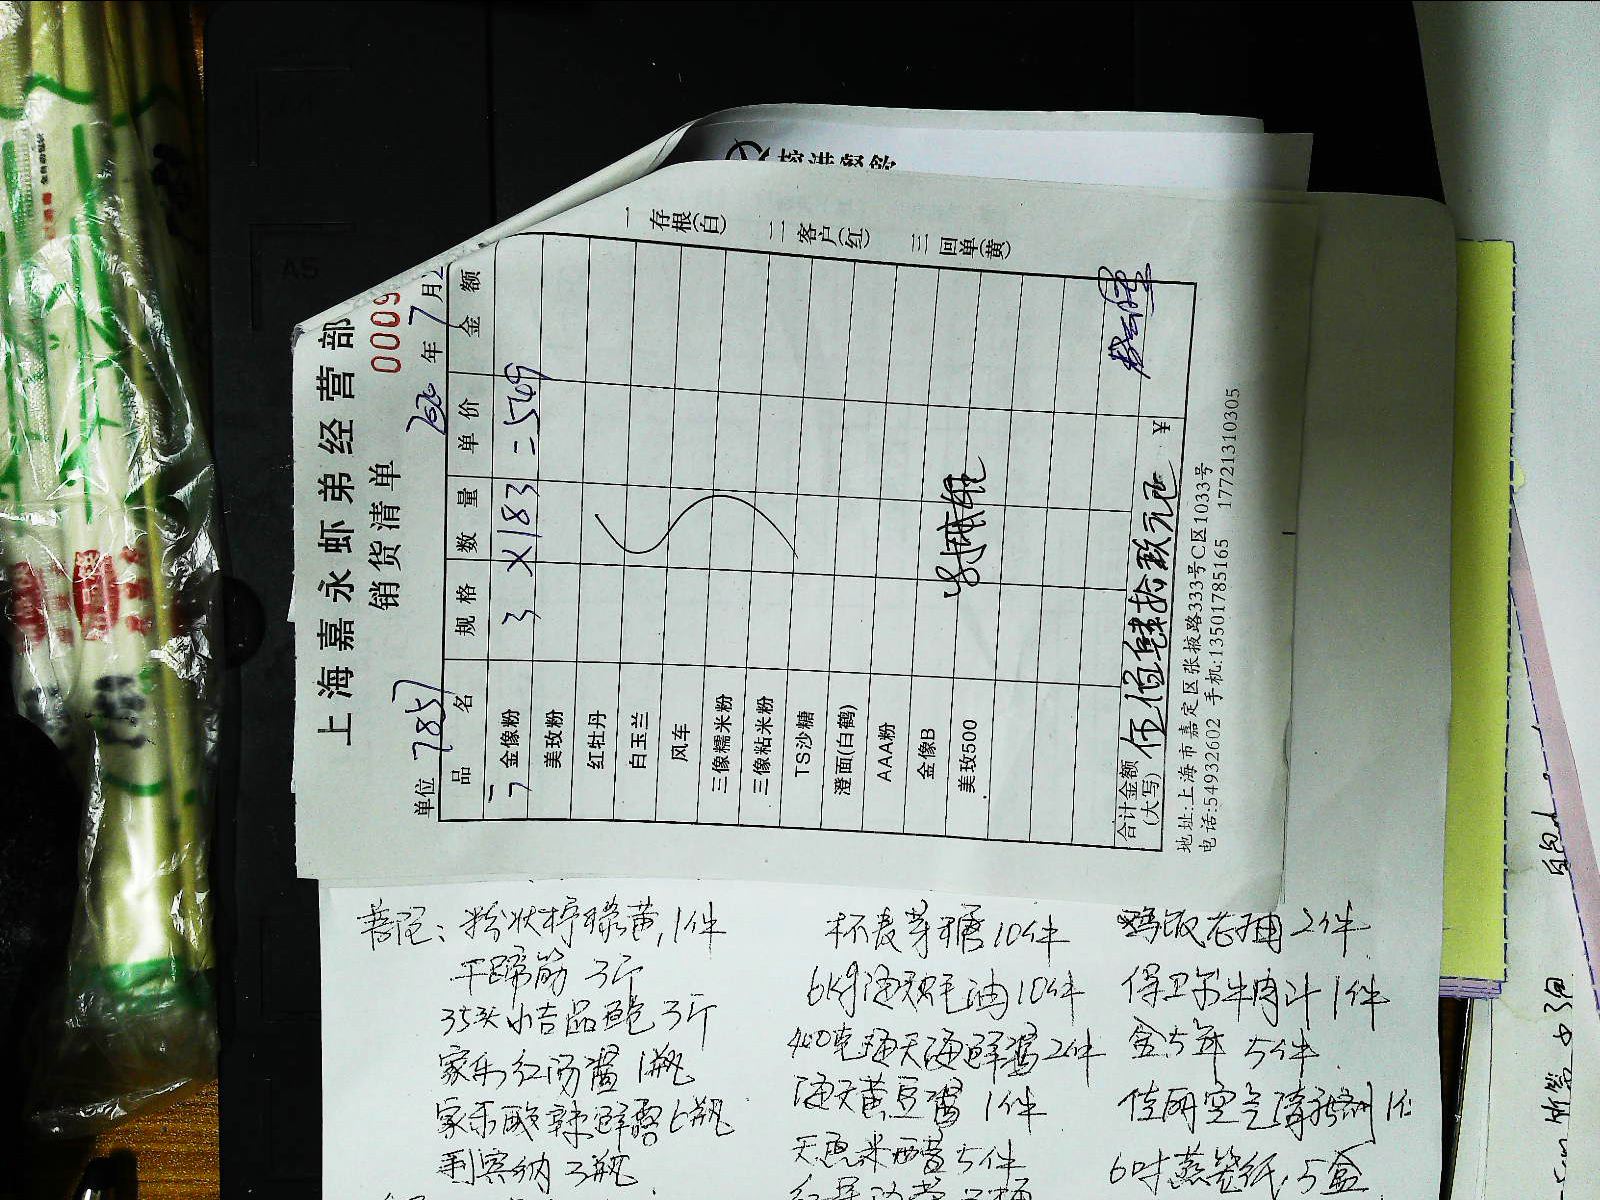 上海嘉永虾弟经营部
销货清单
00009
单位 7857
年 7 月2
品 名 规 格 数 量 单 价 金 额
金像粉 3 × 183 = 549
美玫粉
红牡丹
白玉兰
风车
三像糯米粉
三像粘米粉
TS沙糖
澄面(白鹤)
AAA粉
金像B
美玫500
合计金额(大写) 伍佰肆拾玖元正 ¥
地址:上海市嘉定区张掖路333号C区1033号
电话:54932602 手机:13501785165 17721310305
一 存根(白)
二 客户(红)
三 回单(黄)
粉状柠檬黄,1件
干蹄筋 3斤
35头小吉品鲍 3斤
家乐红汤酱 1瓶
家乐酸辣鲜露 6瓶
杯麦芽糖10件
6kg海天耗油10件
400克海天海鲜酱2件
海天黄豆酱 1件
5件
老抽2件
保卫尔牛肉汁1件
5件
佳丽空气清新剂
6吋蒸笼纸 5盒
A5